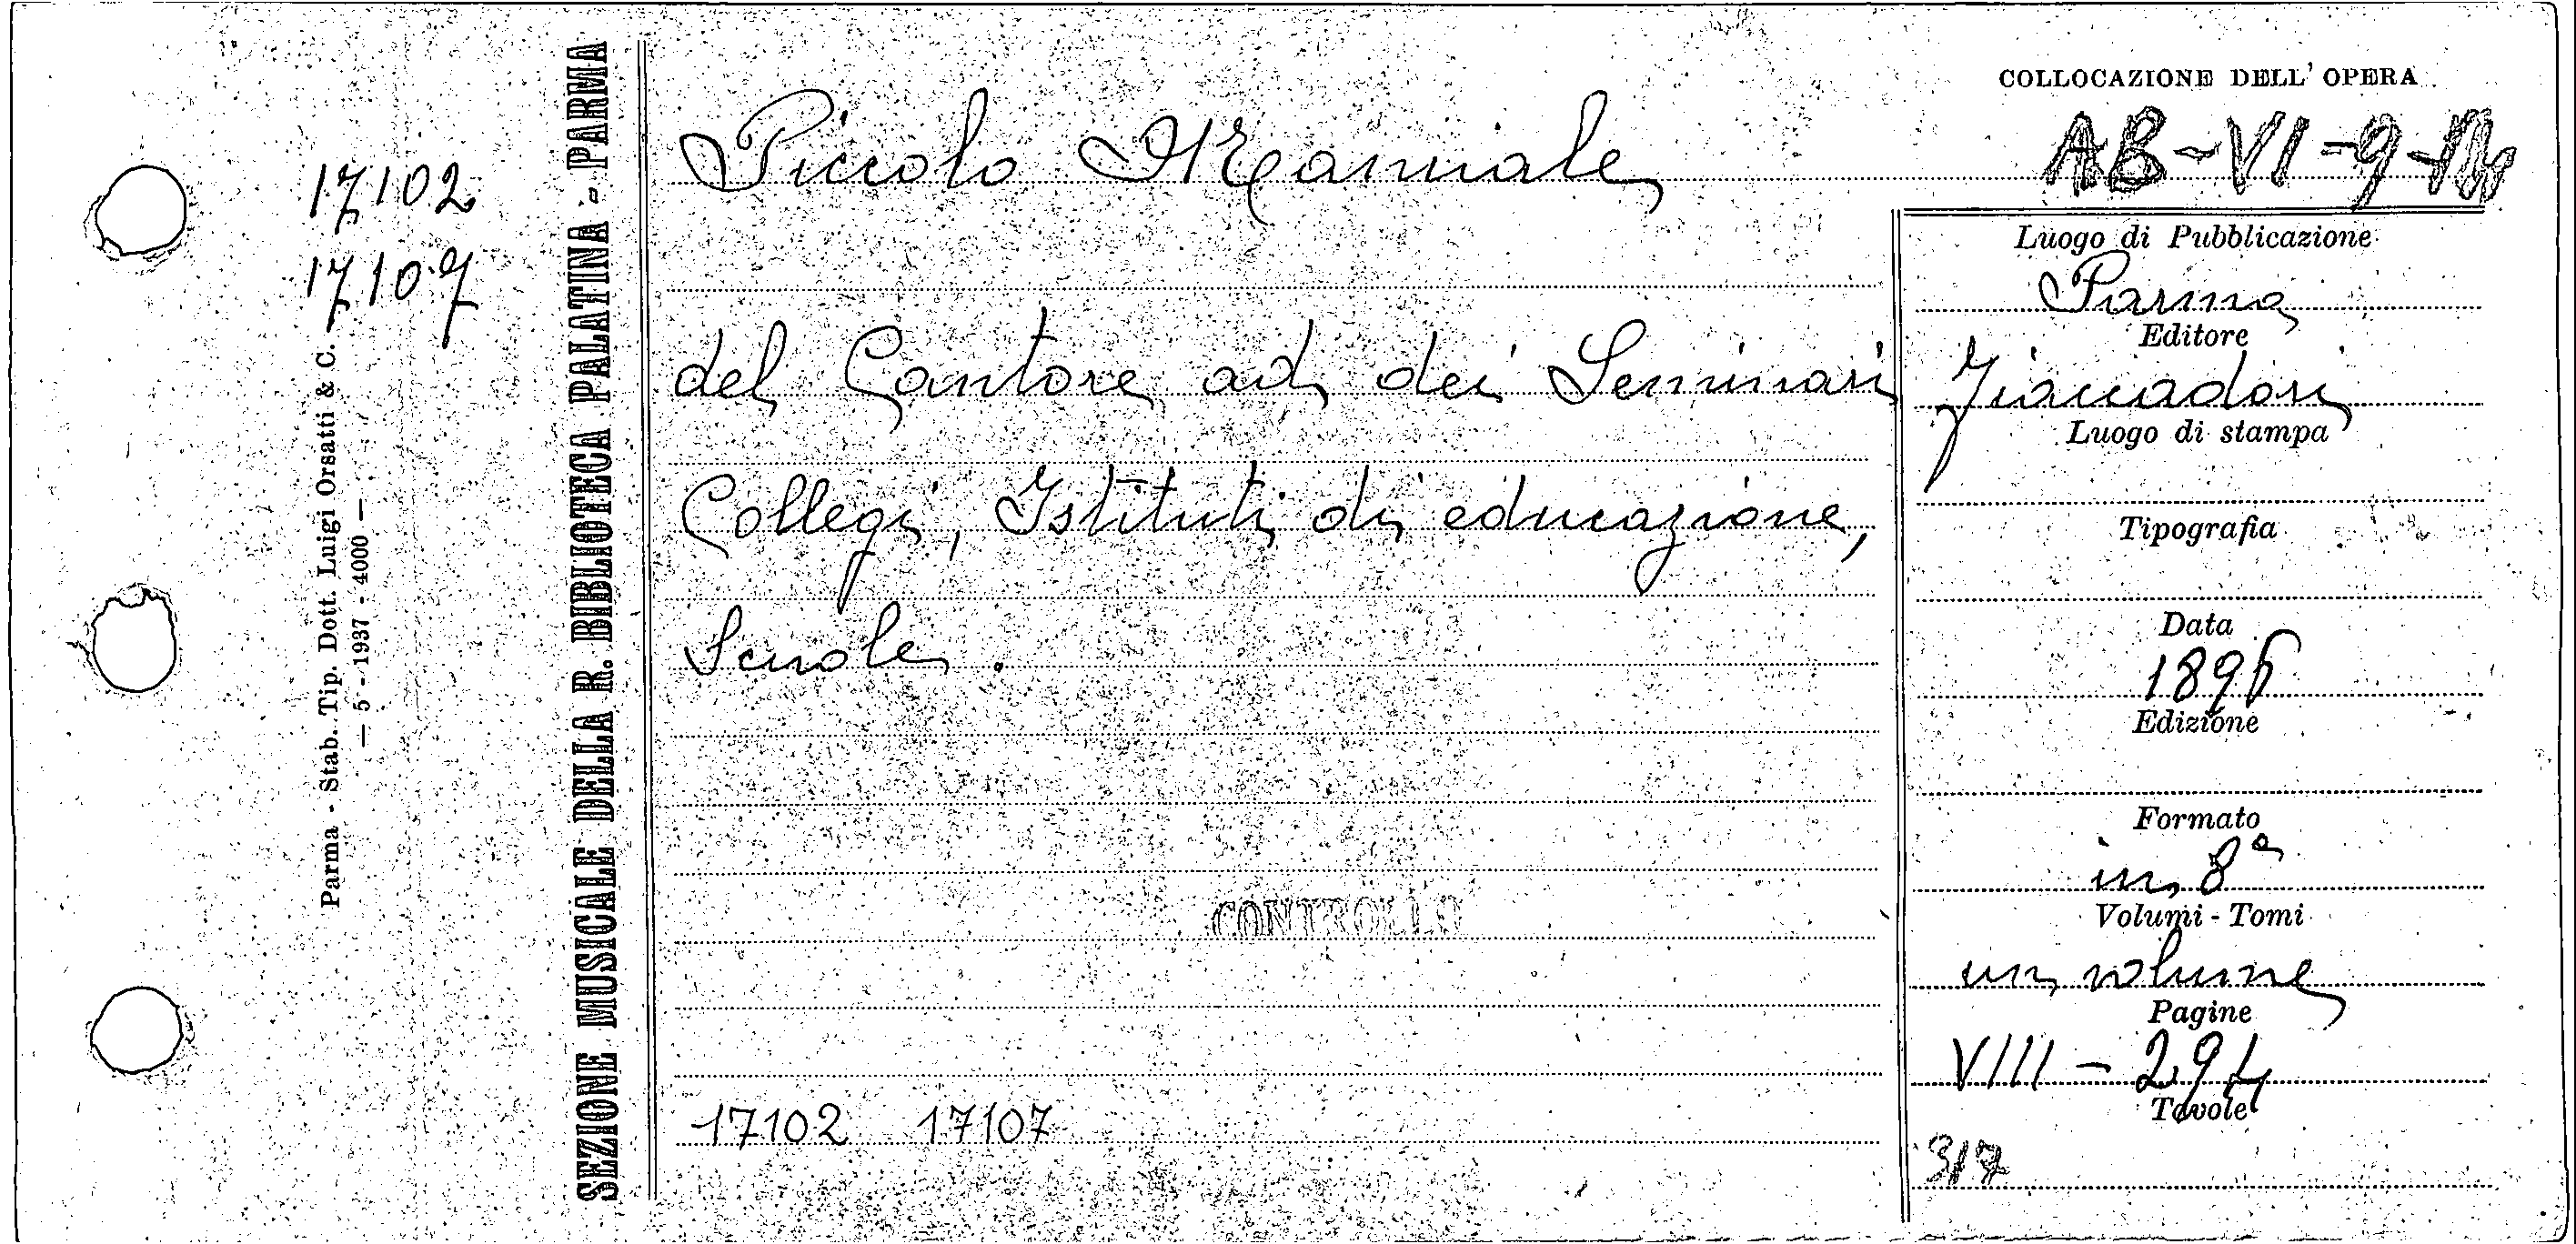 17102
17107
Parma - Stab. Tip. Dott. Luigi Orsatti & C.
— 5 - 1937 - 4000 —
SEZIONE MUSICALE DELLA R. BIBLIOTECA PALATINA - PARMA
Piccolo Manuale
del Cantore ad dei Seminari
Collegi, Istituti di educazione,
Scuole.
CONTROLLO
17102 17107
COLLOCAZIONE DELL' OPERA
AB-VI-9
Luogo di Pubblicazione
Parma
Editore
Fiaccadori
Luogo di stampa
Tipografia
Data
1896
Edizione
Formato
in 8º
Volumi - Tomi
un volume
Pagine
VIII - 294
Tavole
317